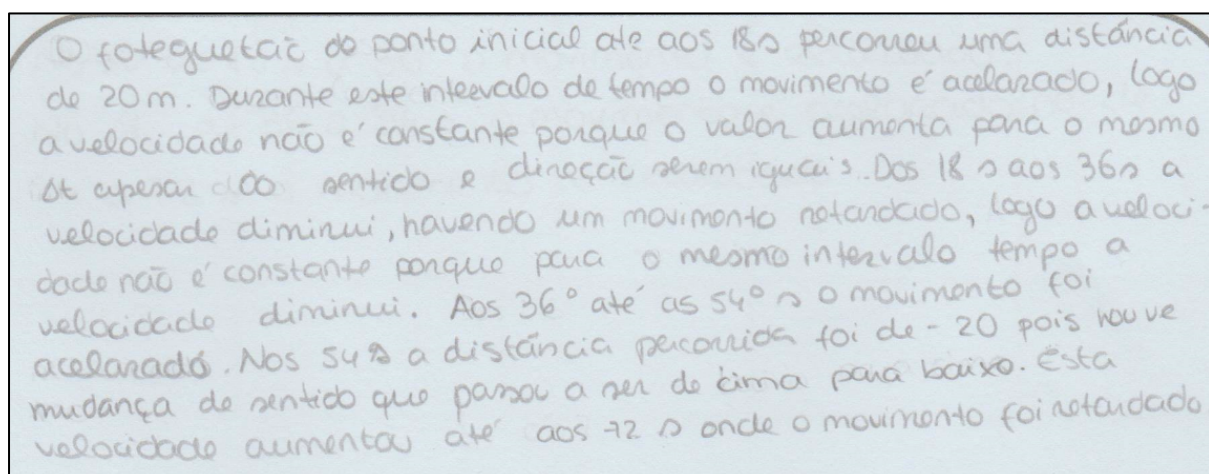 O foteguetaic do ponto inicial ate aos 18s percorreu uma distância
de 20 m. Durante este inteevalo de tempo o movimento é acelarazado, logo
a velocidade não é constante porque o valor aumenta para o mesmo
Δt apesar do sentido e direção serem iguais. Dos 18 s aos 36s a
velocidade diminui, havendo um movimento retardado, logo a veloci-
dade não é constante porque para o mesmo intervalo tempo a
velocidade diminui. Aos 36° até as 54° s o movimento foi
acelarado. Nos 54s a distância percorrida foi de - 20 pois houve
mudança de sentido que passou a ser de cima para baixo. Esta
velocidade aumentou até aos 72 s onde o movimento foi retardado